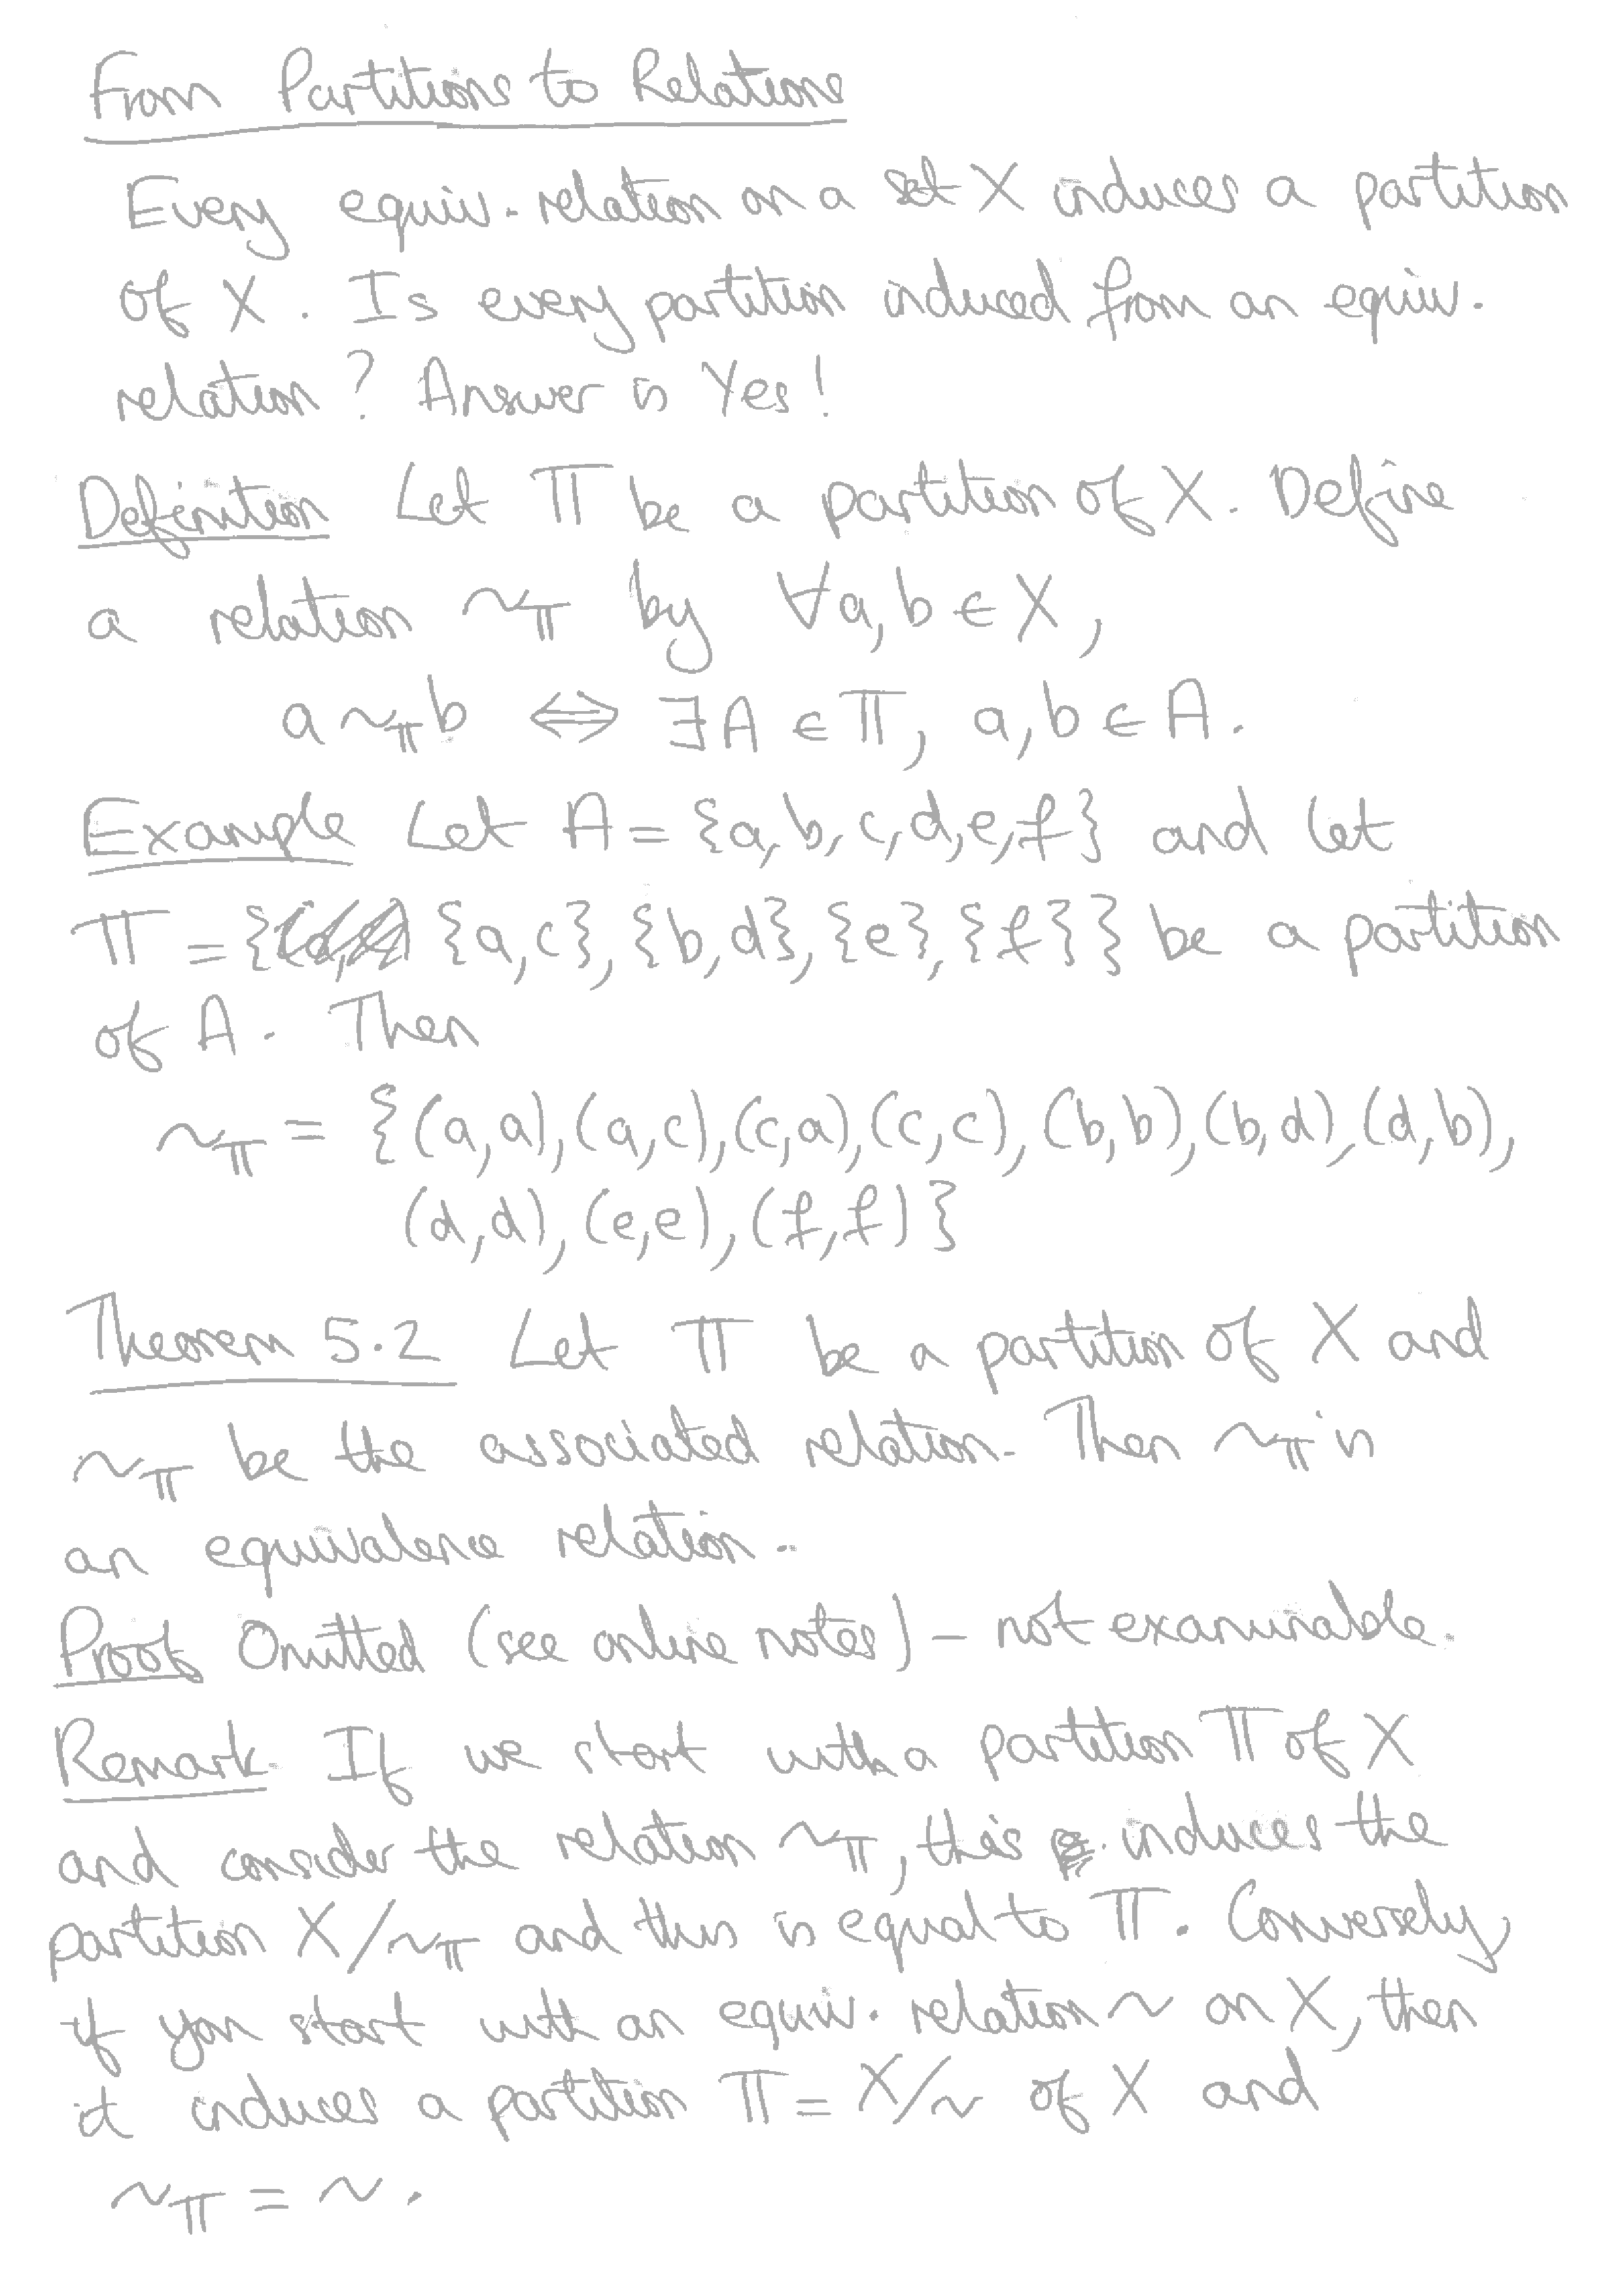 From Partitions to Relations
Every equiv. relation on a set X induces a partition
of X. Is every partition induced from an equiv.
relation? Answer is Yes!
Definition Let Π be a partition of X. Define
a relation ~Π by ∀a,b ∈ X,
a ~Π b ⇔ ∃A ∈ Π, a,b ∈ A.
Example Let A = {a,b,c,d,e,f} and let
Π = { {a,c}, {b,d}, {e}, {f} } be a partition
of A. Then
~Π = {(a,a),(a,c),(c,a),(c,c),(b,b),(b,d),(d,b),
(d,d),(e,e),(f,f)}
Theorem 5.2 Let Π be a partition of X and
~Π be the associated relation. Then ~Π is
an equivalence relation.
Proof Omitted (see online notes) – not examinable.
Remark If we start with a partition Π of X
and consider the relation ~Π, this induces the
partition X/~Π and this is equal to Π. Conversely,
if you start with an equiv. relation ~ on X, then
it induces a partition Π = X/~ of X and
~Π = ~.